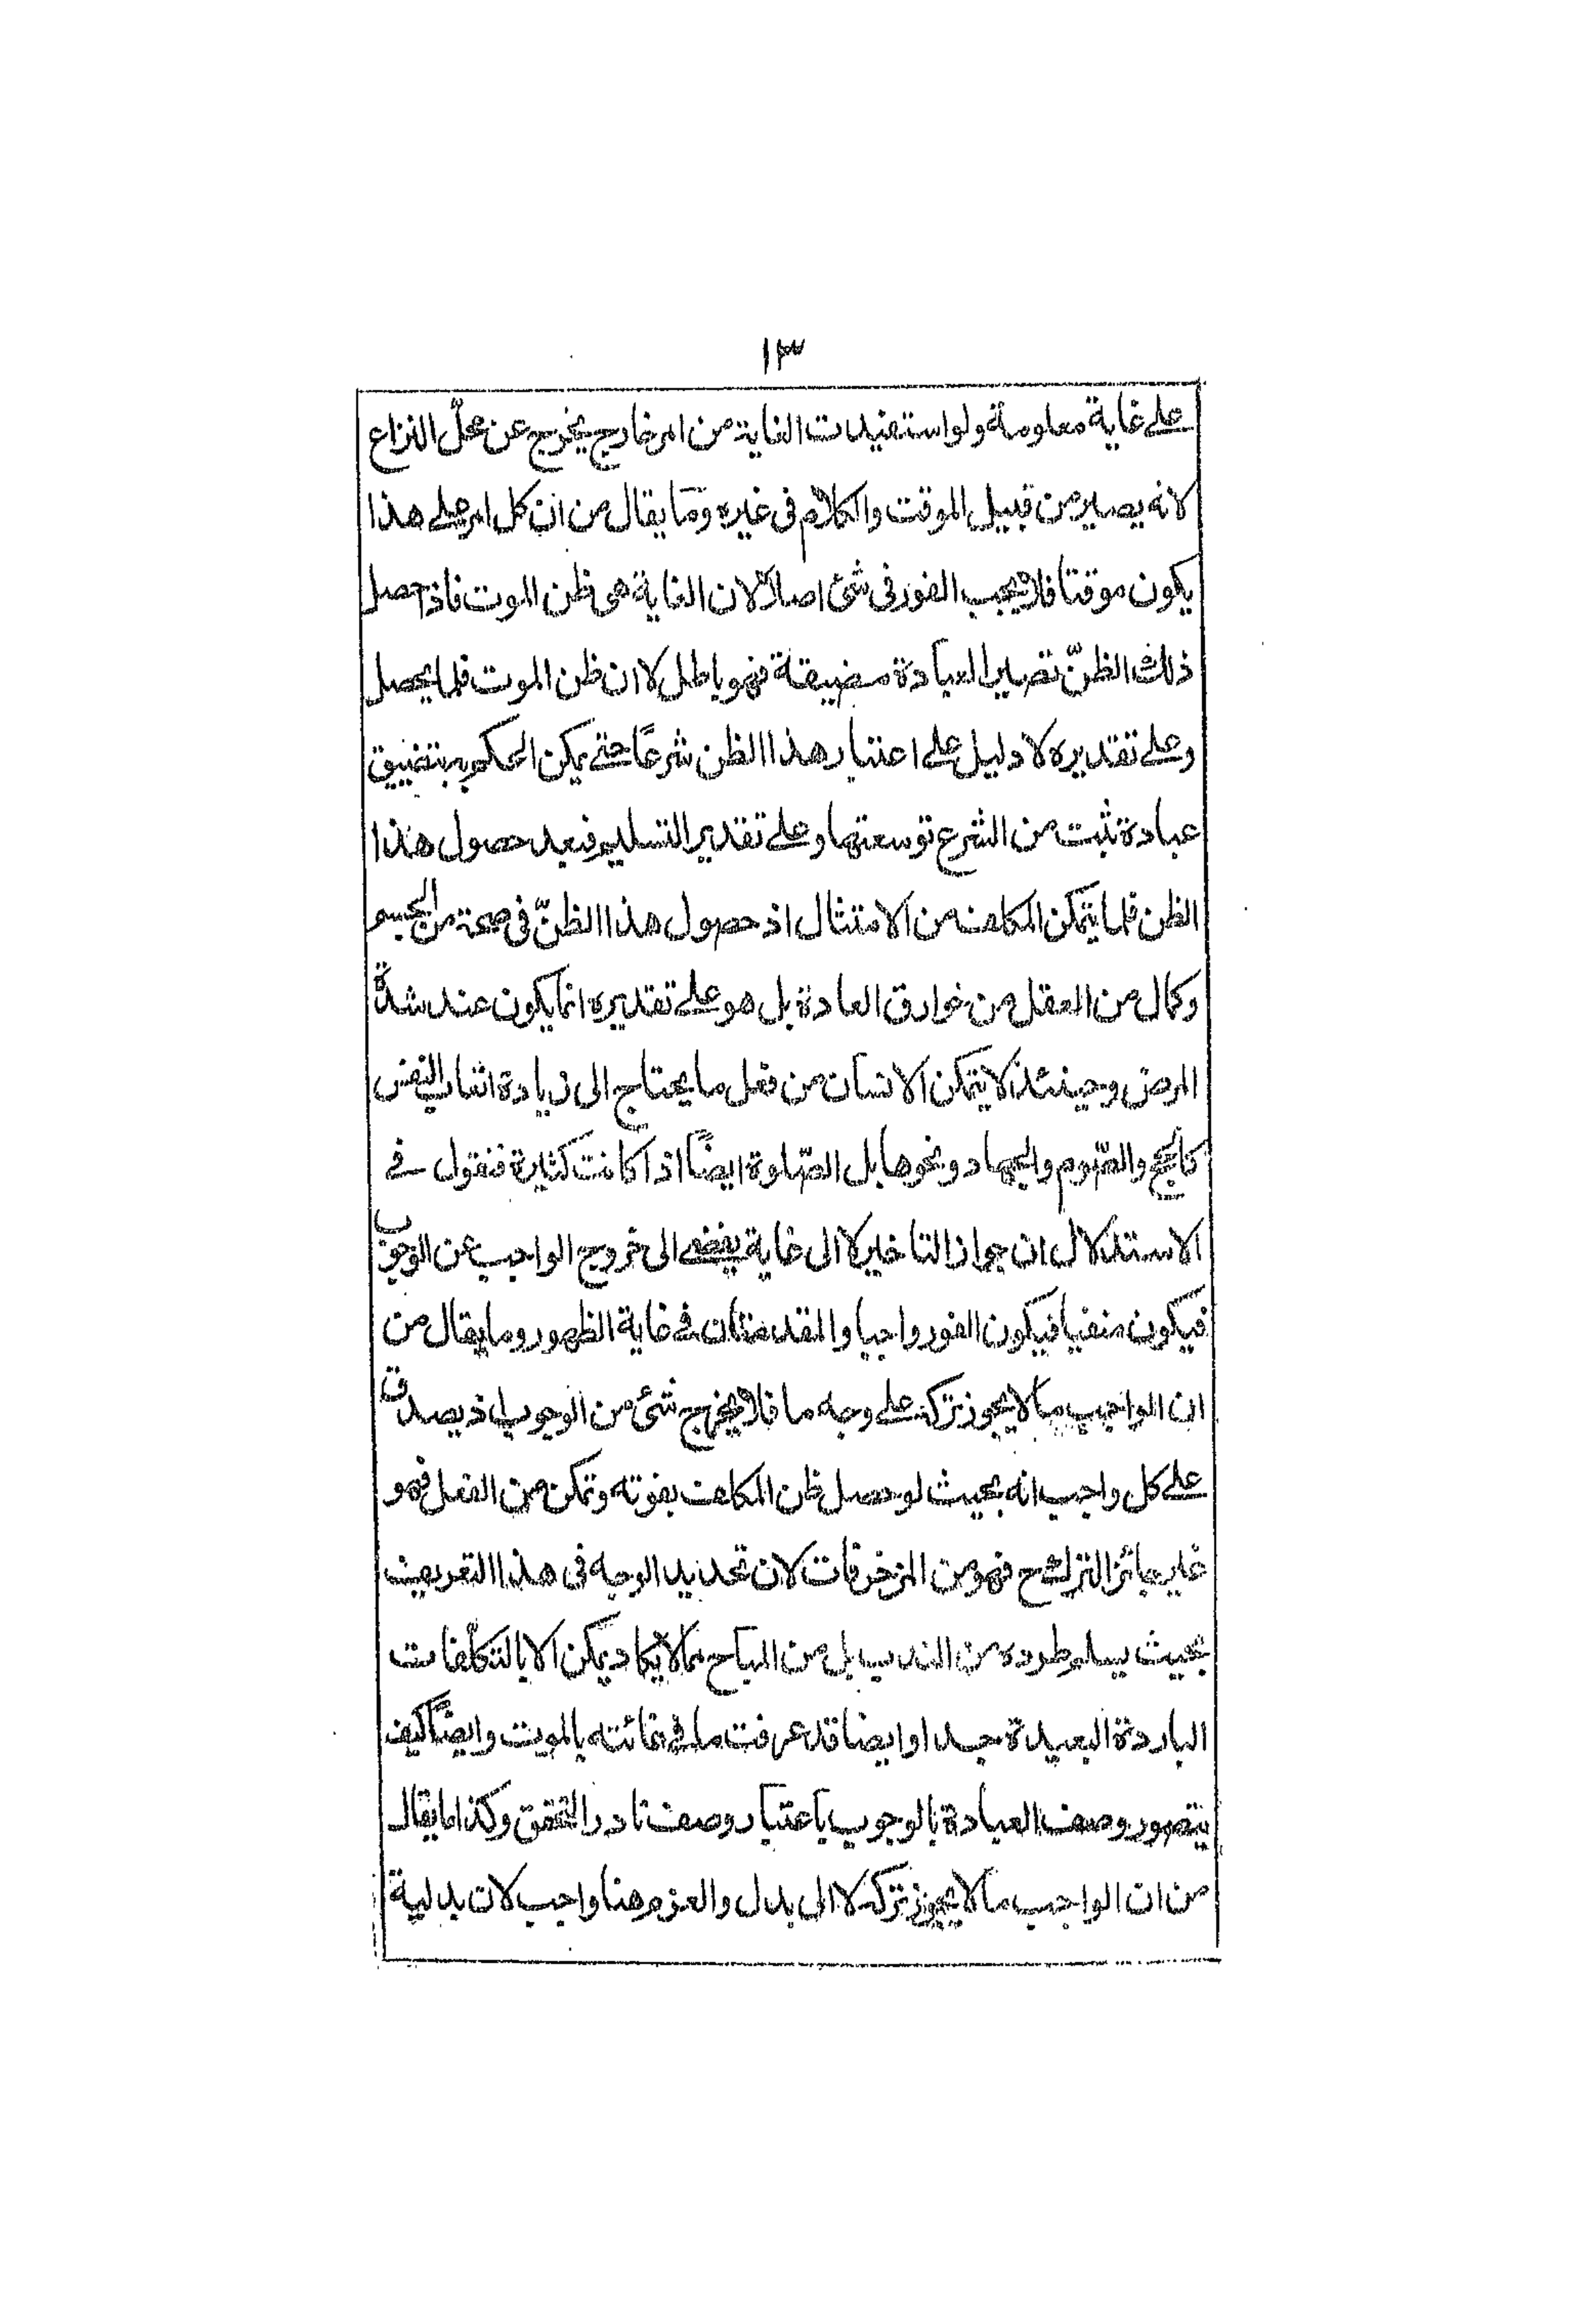 ١٣
على غاية معلومة ولو استفيدت الغاية من امر خارج يخرج عن محلّ النزاع
لانه يصير من قبيل الموقت والكلام فى غيره وما يقال من ان كل امر على هذا
يكون موقتا فلا يجب الفور فى شئ اصلا لان الغاية هى ظن الموت فاذ حصل
ذلك الظنّ تصير العبادة مضيقة فهو باطل لان ظن الموت قلما يحصل
وعلى تقديره لا دليل على اعتبار هذا الظن شرعًا حتى يمكن الحكم به بتضييق
عبادة ثبت من الشرع توسعتها وعلى تقدير التسليم فبعد حصول هذا
الظن قلما يتمكن المكلف من الامتثال اذ حصول هذا الظنّ فى صحة من الجسم
وكمال من العقل من خوارق العادة بل هو على تقديره انما يكون عند شدة
المرض وحينئذ لا يتمكن الانسان من فعل ما يحتاج الى زيادة اتعاب النفس
كالحج والصّوم والجهاد ونحوها بل الصّلوة ايضًا اذا كانت كثيرة فنقول فى
الاستدلال ان جواز التاخير لا الى غاية يفضى الى خروج الواجب عن الوجوب
فيكون منفيا فيكون الفور واجبا والمقدمتان فى غاية الظهور وما يقال من
ان الواجب ما لا يجوز تركه على وجه ما فلا يخرج شئ من الوجوب اذ يصدق
على كل واجب انه بحيث لو حصل ظن المكلف بفوته وتمكن من الفعل فهو
غير جائز الترك ح فهو من المزخرفات لان تحديد الوجه فى هذا التعريف
بحيث يسلم طرده من الندب بل من المباح مما لا يكاد يمكن الا بالتكلفات
الباردة البعيدة جدا وايضا قد عرفت ما فى غائته بالموت وايضًا كيف
يتصور وصف العبادة بالوجوب باعتبار وصف نادر التحقق وكذا ما يقال
من ان الواجب ما لا يجوز تركه لا الى بدل والعزم هنا واجب لان بدلية